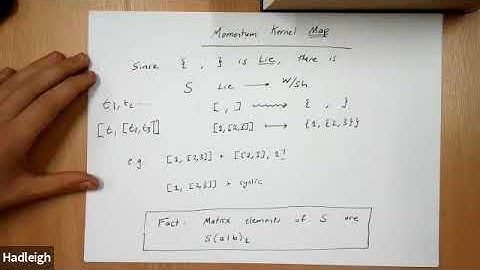 Momentum Kernel Map
Since { , } is Lie, there is
S Lie ⟶ W/sh
t1, t2 ...
[ , ] ⟿ { , }
[t, [t2,t3]]
[1,[2,3]] ⟼ {1,{2,3}}
e.g. [1,[2,3]] + [[2,3],1]
[1,[2,3]] + cyclic
Fact: Matrix elements of S are
S(a|b)
Hadleigh